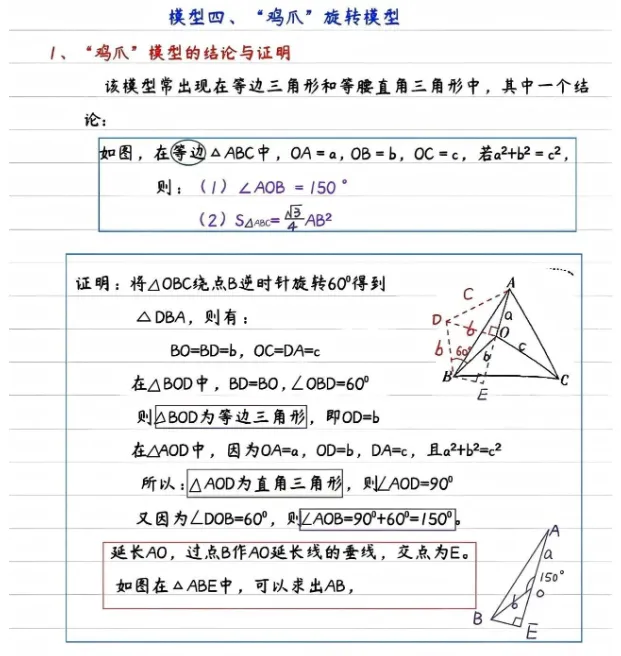 模型四、“鸡爪”旋转模型
1、“鸡爪”模型的结论与证明
该模型常出现在等边三角形和等腰直角三角形中，其中一个结
论：
如图，在等边△ABC中，OA=a，OB=b，OC=c，若a²+b²=c²，
则：（1）∠AOB=150°
（2）S△ABC=√3/4 AB²
证明：将△OBC绕点B逆时针旋转60⁰得到
△DBA，则有：
BO=BD=b，OC=DA=c
在△BOD中，BD=BO，∠OBD=60⁰
则△BOD为等边三角形，即OD=b
在△AOD中，因为OA=a，OD=b，DA=c，且a²+b²=c²
所以：△AOD为直角三角形，则∠AOD=90⁰
又因为∠DOB=60⁰，则∠AOB=90⁰+60⁰=150⁰。
延长AO，过点B作AO延长线的垂线，交点为E。
如图在△ABE中，可以求出AB，
A
C
a
D
b
O
b
60°
b
c
B
C
E
A
a
150°
b
O
B
E